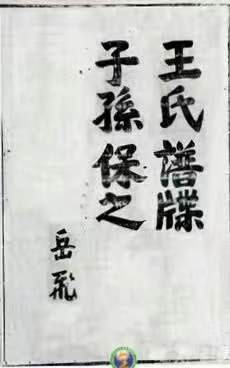 王氏譜牒
子孫保之
岳飛